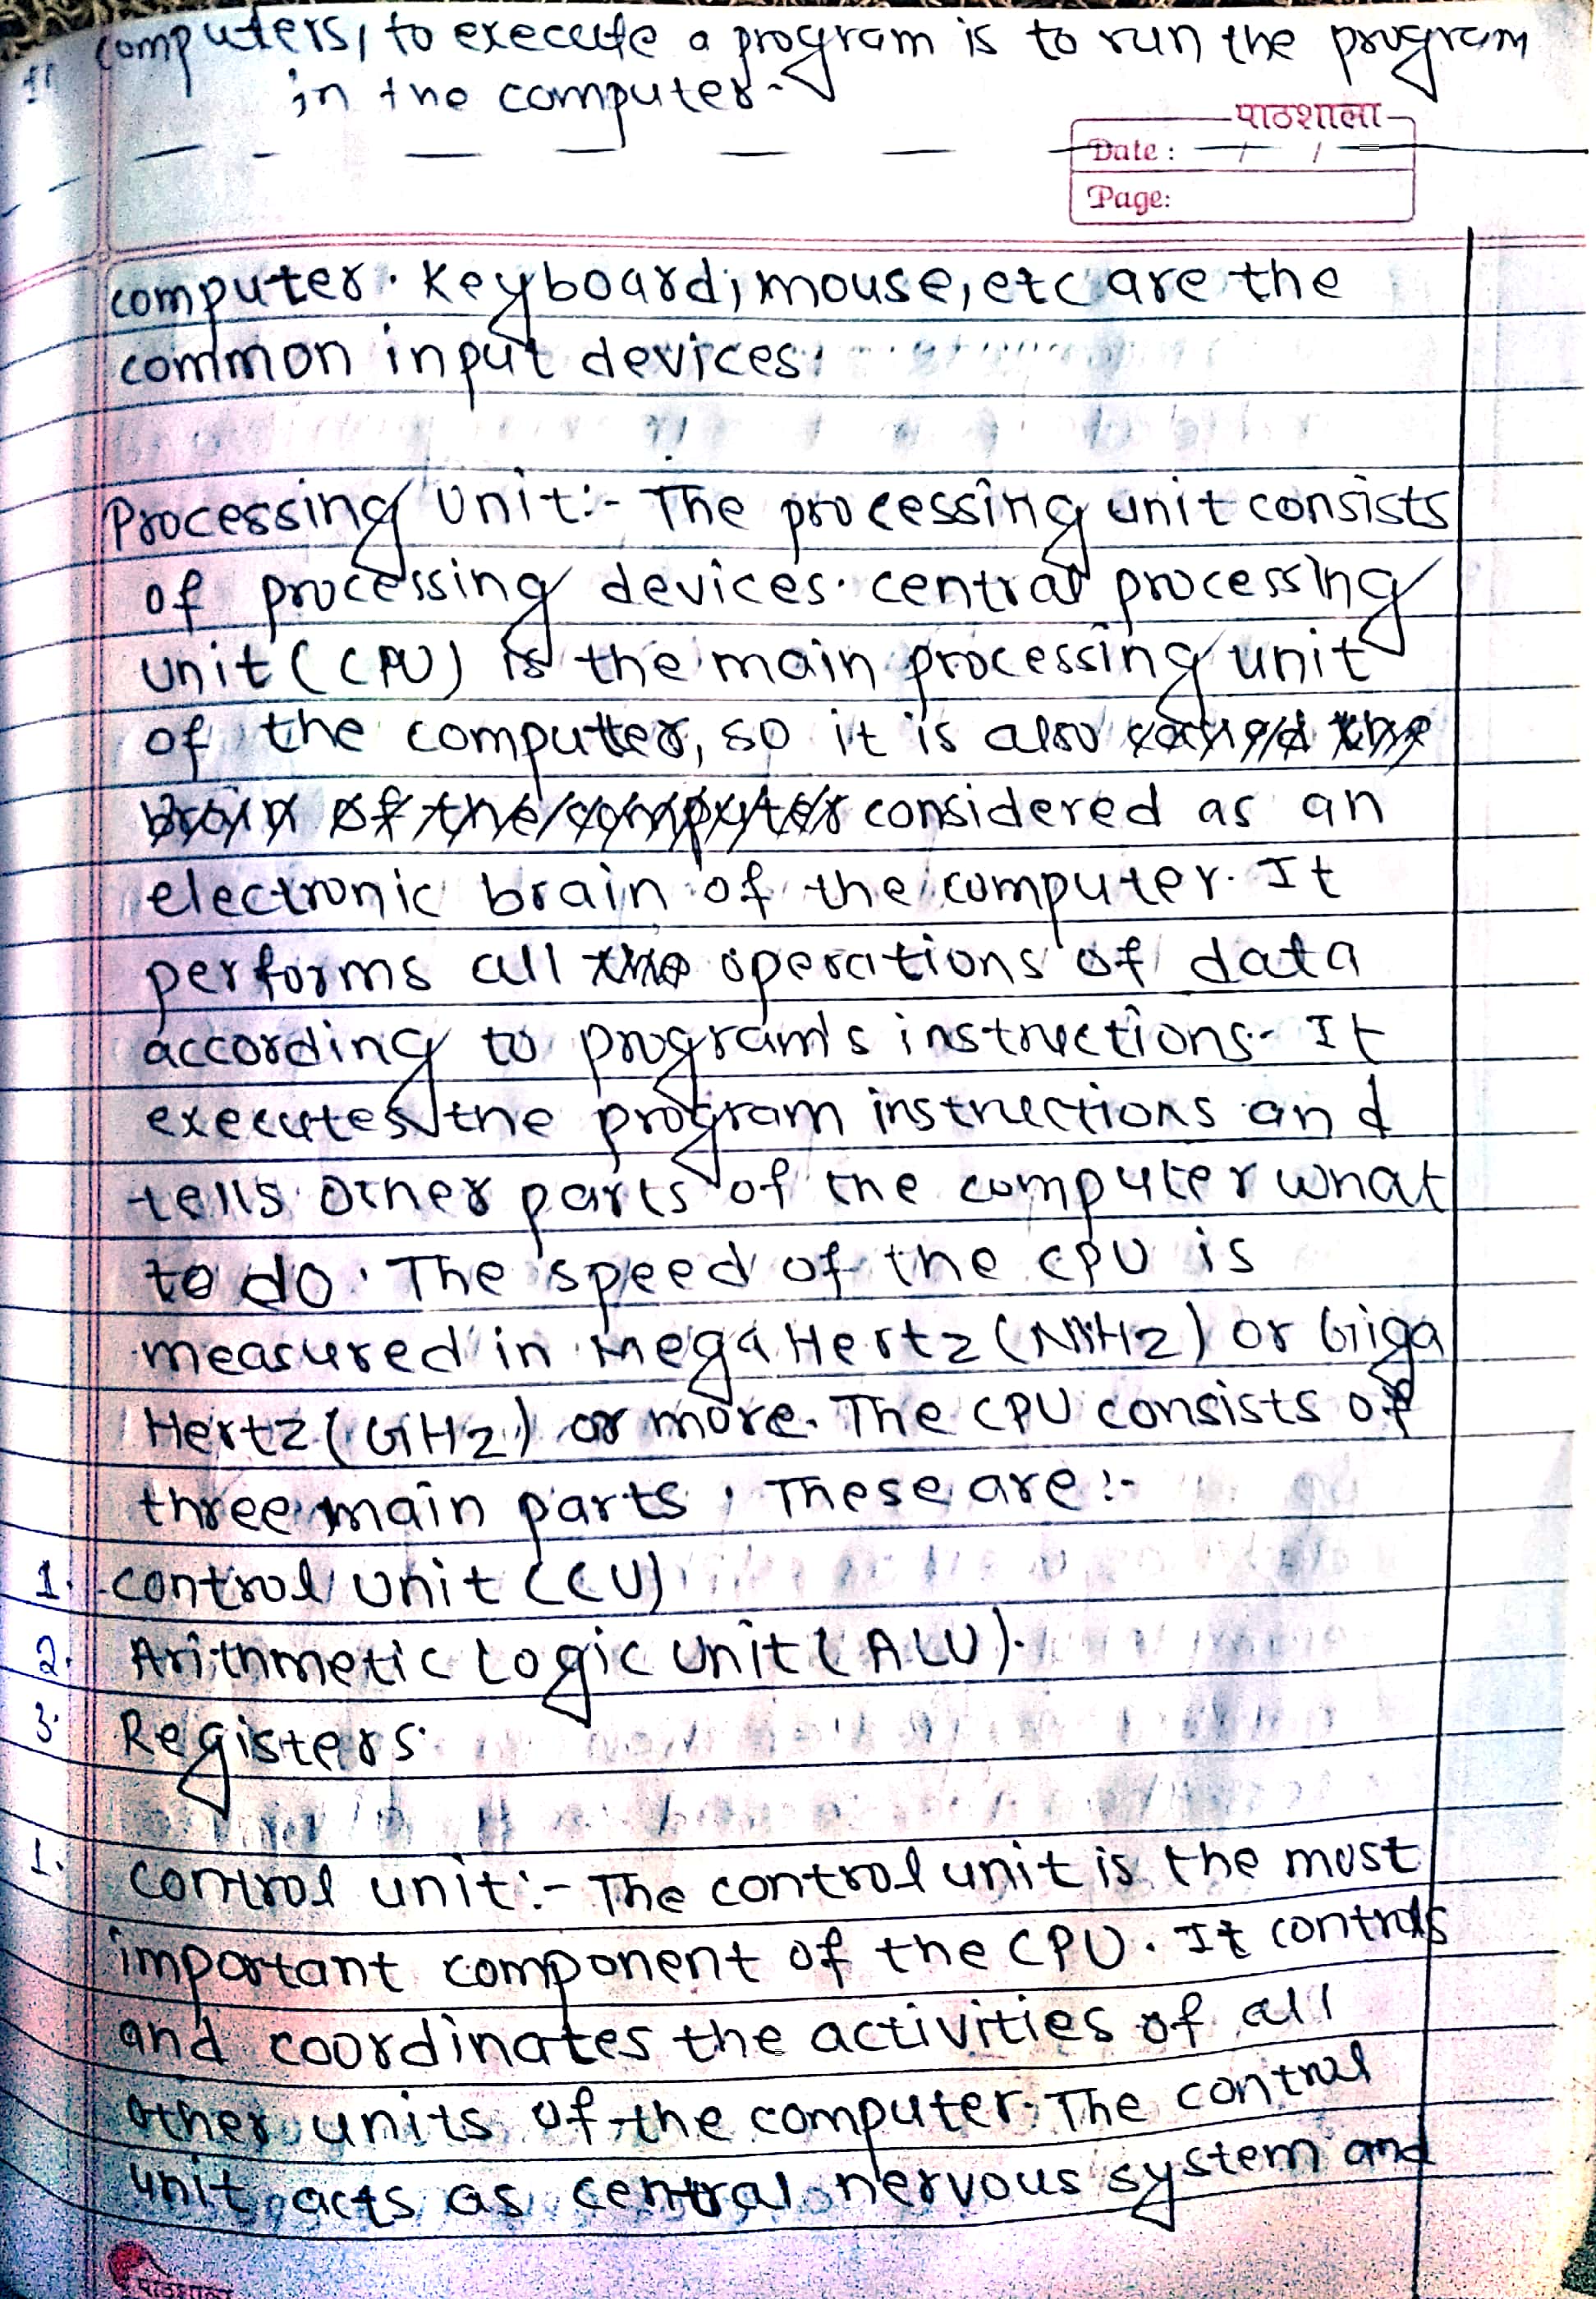 computers, to execute a program is to run the program
in the computer.
पाठशाला
Date : / /
Page:
computer. Keyboard, mouse, etc are the
common input devices.
Processing Unit:- The processing unit consists
of processing devices. central processing
unit (CPU) is the main processing unit
of the computer, so it is also called the
brain of the computer considered as an
electronic brain of the computer. It
performs all the operations of data
according to program's instructions. It
executes the program instructions and
tells other parts of the computer what
to do. The speed of the CPU is
measured in Mega Hertz (MHz) or Giga
Hertz (GHz) or more. The CPU consists of
three main parts, These are:-
1. control unit (CU)
2. Arithmetic Logic Unit (ALU).
3. Registers.
1. control unit:- The control unit is the most
important component of the CPU. It controls
and coordinates the activities of all
other units of the computer. The control
unit acts as central nervous system and
पाठशाला